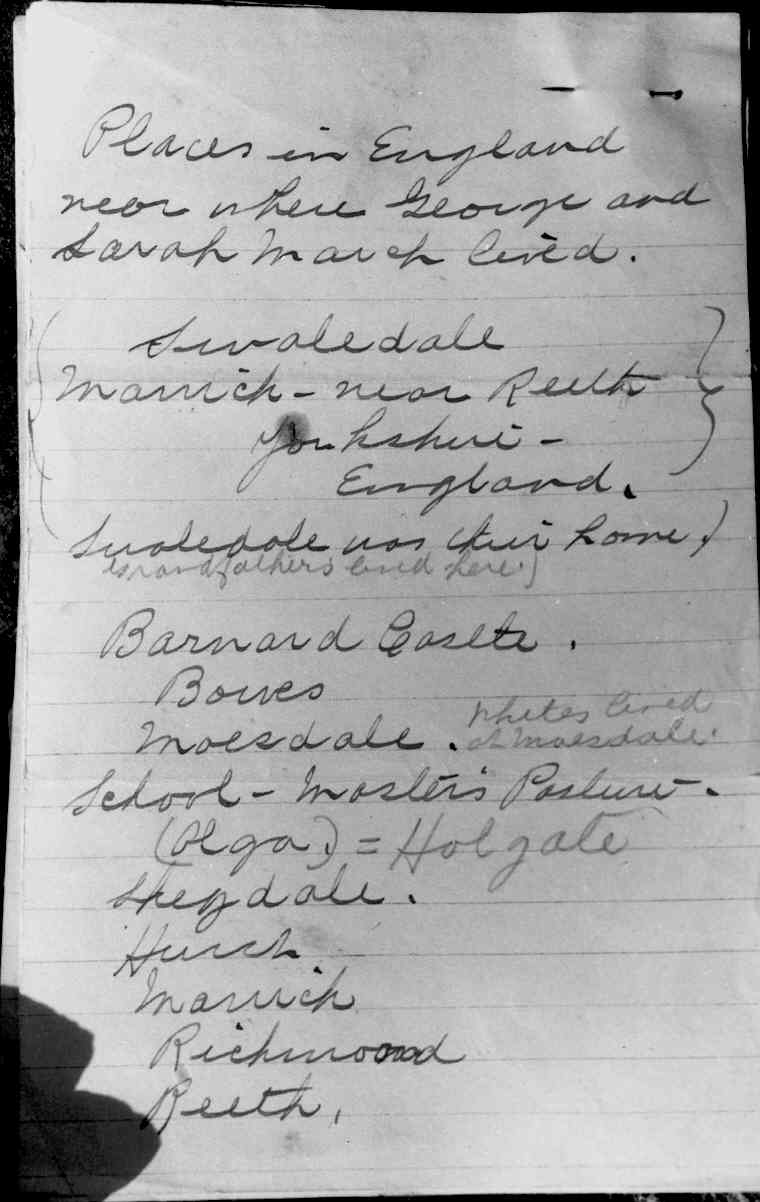 Places in England
near where George and
Sarah March lived.
Swaledale
Marrick - near Reeth
Yorkshire -
England.
Swaledale was their home.)
Grandfathers lived here.)
Barnard Castle.
Bowes
Moesdale. Whites lived
at Moesdale.
School - Master's Pasture -.
(Olga.) = Holgate
Skegdale.
Hurst
Marrick
Richmond
Reeth,